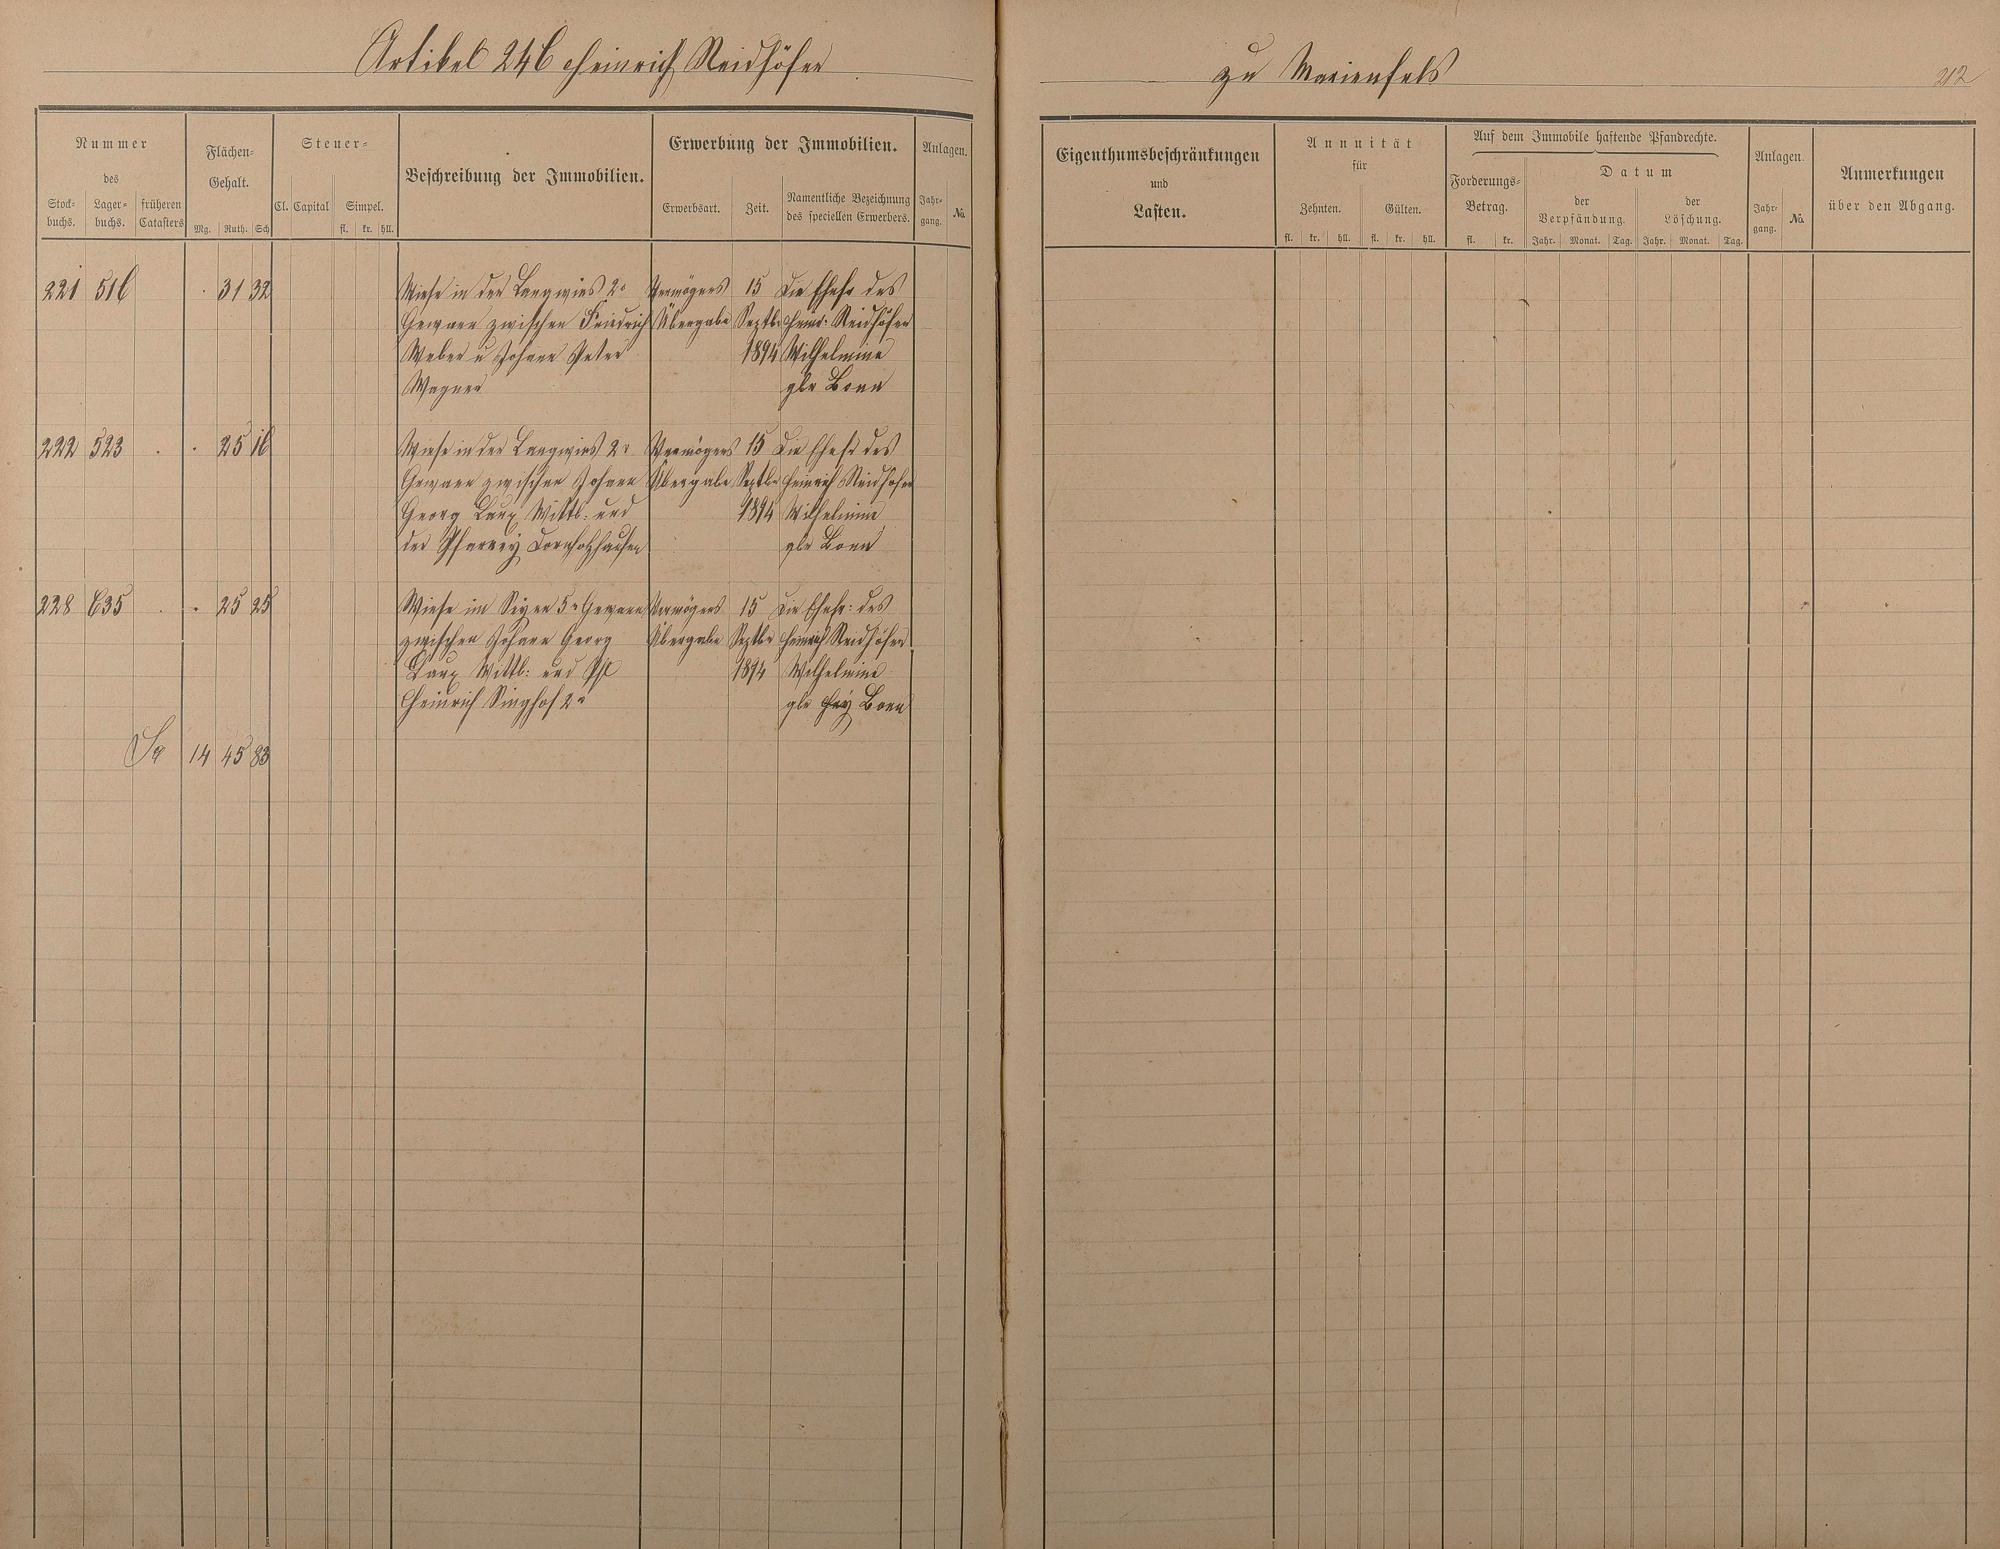 Artikel 246 Heinrich Neidhöfer
zu Marienfels
212
Nummer
des
Stock-
buchs.
Lager-
buchs.
früheren
Catasters
Flächen-
Gehalt.
Mg. Ruth. Sch
Steuer-
Cl. Capital Simpel.
fl. kr. hll.
Beschreibung der Immobilien.
Erwerbung der Immobilien.
Erwerbsart. Zeit. Namentliche Bezeichnung
des speciellen Erwerbers.
Anlagen.
Jahr-
gang. No.
Eigenthumsbeschränkungen
und
Lasten.
Annuität
für
Zehnten. Gülten.
fl. kr. hll. fl. kr. hll.
Auf dem Immobile haftende Pfandrechte.
Forderungs-
Betrag.
fl. kr.
Datum
der
Verpfändung.
der
Löschung.
Jahr. Monat. Tag. Jahr. Monat. Tag.
Anlagen.
Jahr-
gang. No.
Anmerkungen
über den Abgang.
221 516 31 32 Wiese in der Langwies 2r Vermögens 15 Die Ehefr des
Gewann zwischen Friedrich Übergabe Septbr Heinr: Neidhöfer
Weber u Johann Peter 1894 Wilhelmine
Wagner gbr Bonn
222 523 25 16 Wiese in der Langwies 2r Vermögens 15 Die Ehefr des
Gewann zwischen Johann Übergabe Septbr Heinrich Neidhöfer
Georg Laux Wittb: und 1894 Wilhelmine
der Pfarrey Dornholzhausen gbr Bonn
228 635 25 25 Wiese im 5r Gewann Vermögens 15 Die Ehefr: des
zwischen Johann Georg Übergabe Septbr Heinrich Neidhöfer
Laux Wittb: und 1894 Wilhelmine
Heinrich Singhof 2r gbr Bonn
Sa 14 45 83